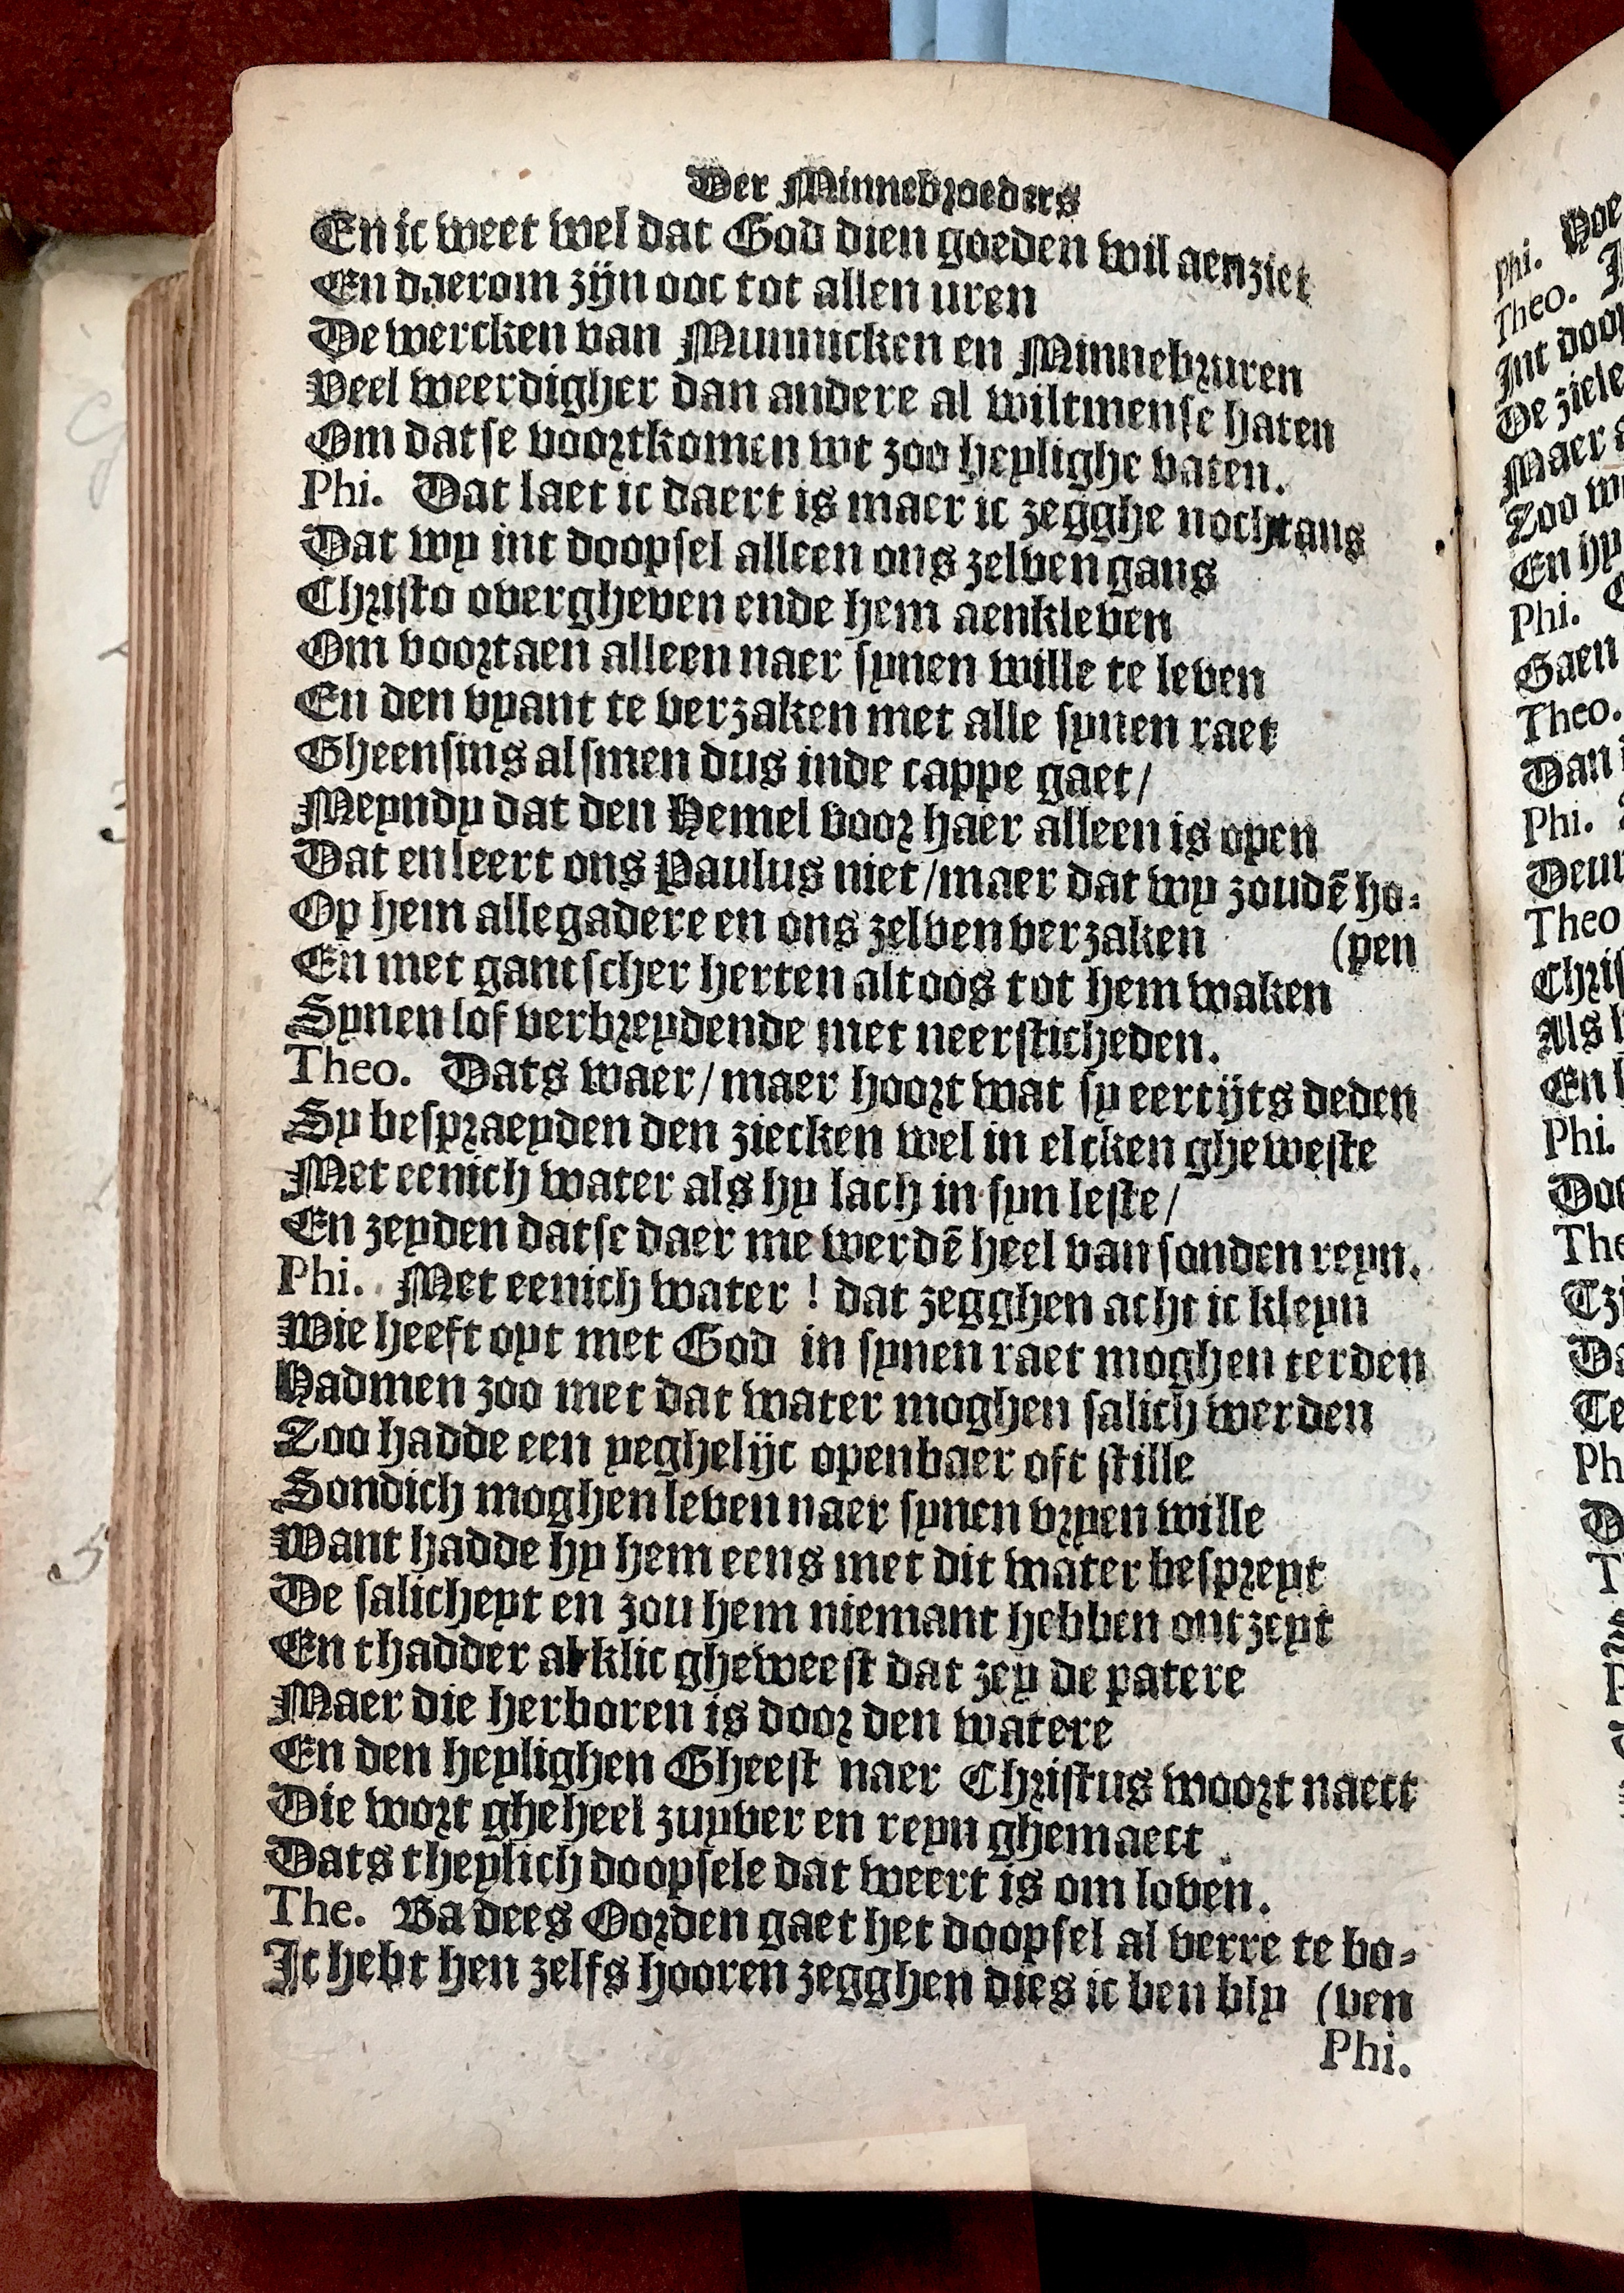 Der Minnebroeders
En ic weet wel dat God dien goeden wil aenziet
En daerom zijn ooc tot allen uren
De wercken van Munnicken en Minnebruren
Veel weerdigher dan andere al wiltmense haten
Om datse voortkomen wt zoo heylighe vaten.
Phi. Dat laet ic daert is maer ic zegghe nochtans
Dat wy int doopsel alleen ons zelven gans
Christo overgheven ende hem aenkleven
Om voortaen alleen naer synen wille te leven
En den vyant te verzaken met alle synen raet
Gheensins alsmen dus inde cappe gaet/
Meyndy dat den Hemel voor haer alleen is open
Dat en leert ons Paulus niet/maer dat wy zoudē ho-
Op hem allegadere en ons zelven verzaken (pen
En met gantscher herten altoos tot hem waken
Synen lof verbreydende met neersticheden.
Theo. Dats waer/maer hoort wat sy eertijts deden
Sy bespraeyden den ziecken wel in elcken gheweste
Met eenich water als hy lach in syn leste/
En zeyden datse daer me werdē heel van sonden reyn.
Phi. Met eenich water ! dat zegghen acht ic kleyn
Wie heeft oyt met God in synen raet moghen terden
Hadmen zoo met dat water moghen salich werden
Zoo hadde een yeghelijc openbaer oft stille
Sondich moghen leven naer synen vryen wille
Want hadde hy hem eens met dit water bespreyt
De salicheyt en zou hem niemant hebben ontzeyt
En thadder al klic gheweest dat zey de patere
Maer die herboren is door den watere
En den heylighen Gheest naer Christus woort naect
Die wort gheheel zuyver en reyn ghemaect
Dats theylich doopsele dat weert is om loven.
The. Ba dees Oorden gaet het doopsel al verre te bo-
Ic hebt hen zelfs hooren zegghen dies ic ben bly (ven
Phi.
Phi.
Theo.
Int
De ziele
Maer
Zoo
En hy
Phi.
Gaen
Theo.
Dan
Phi.
Theo
Als
En
Phi.